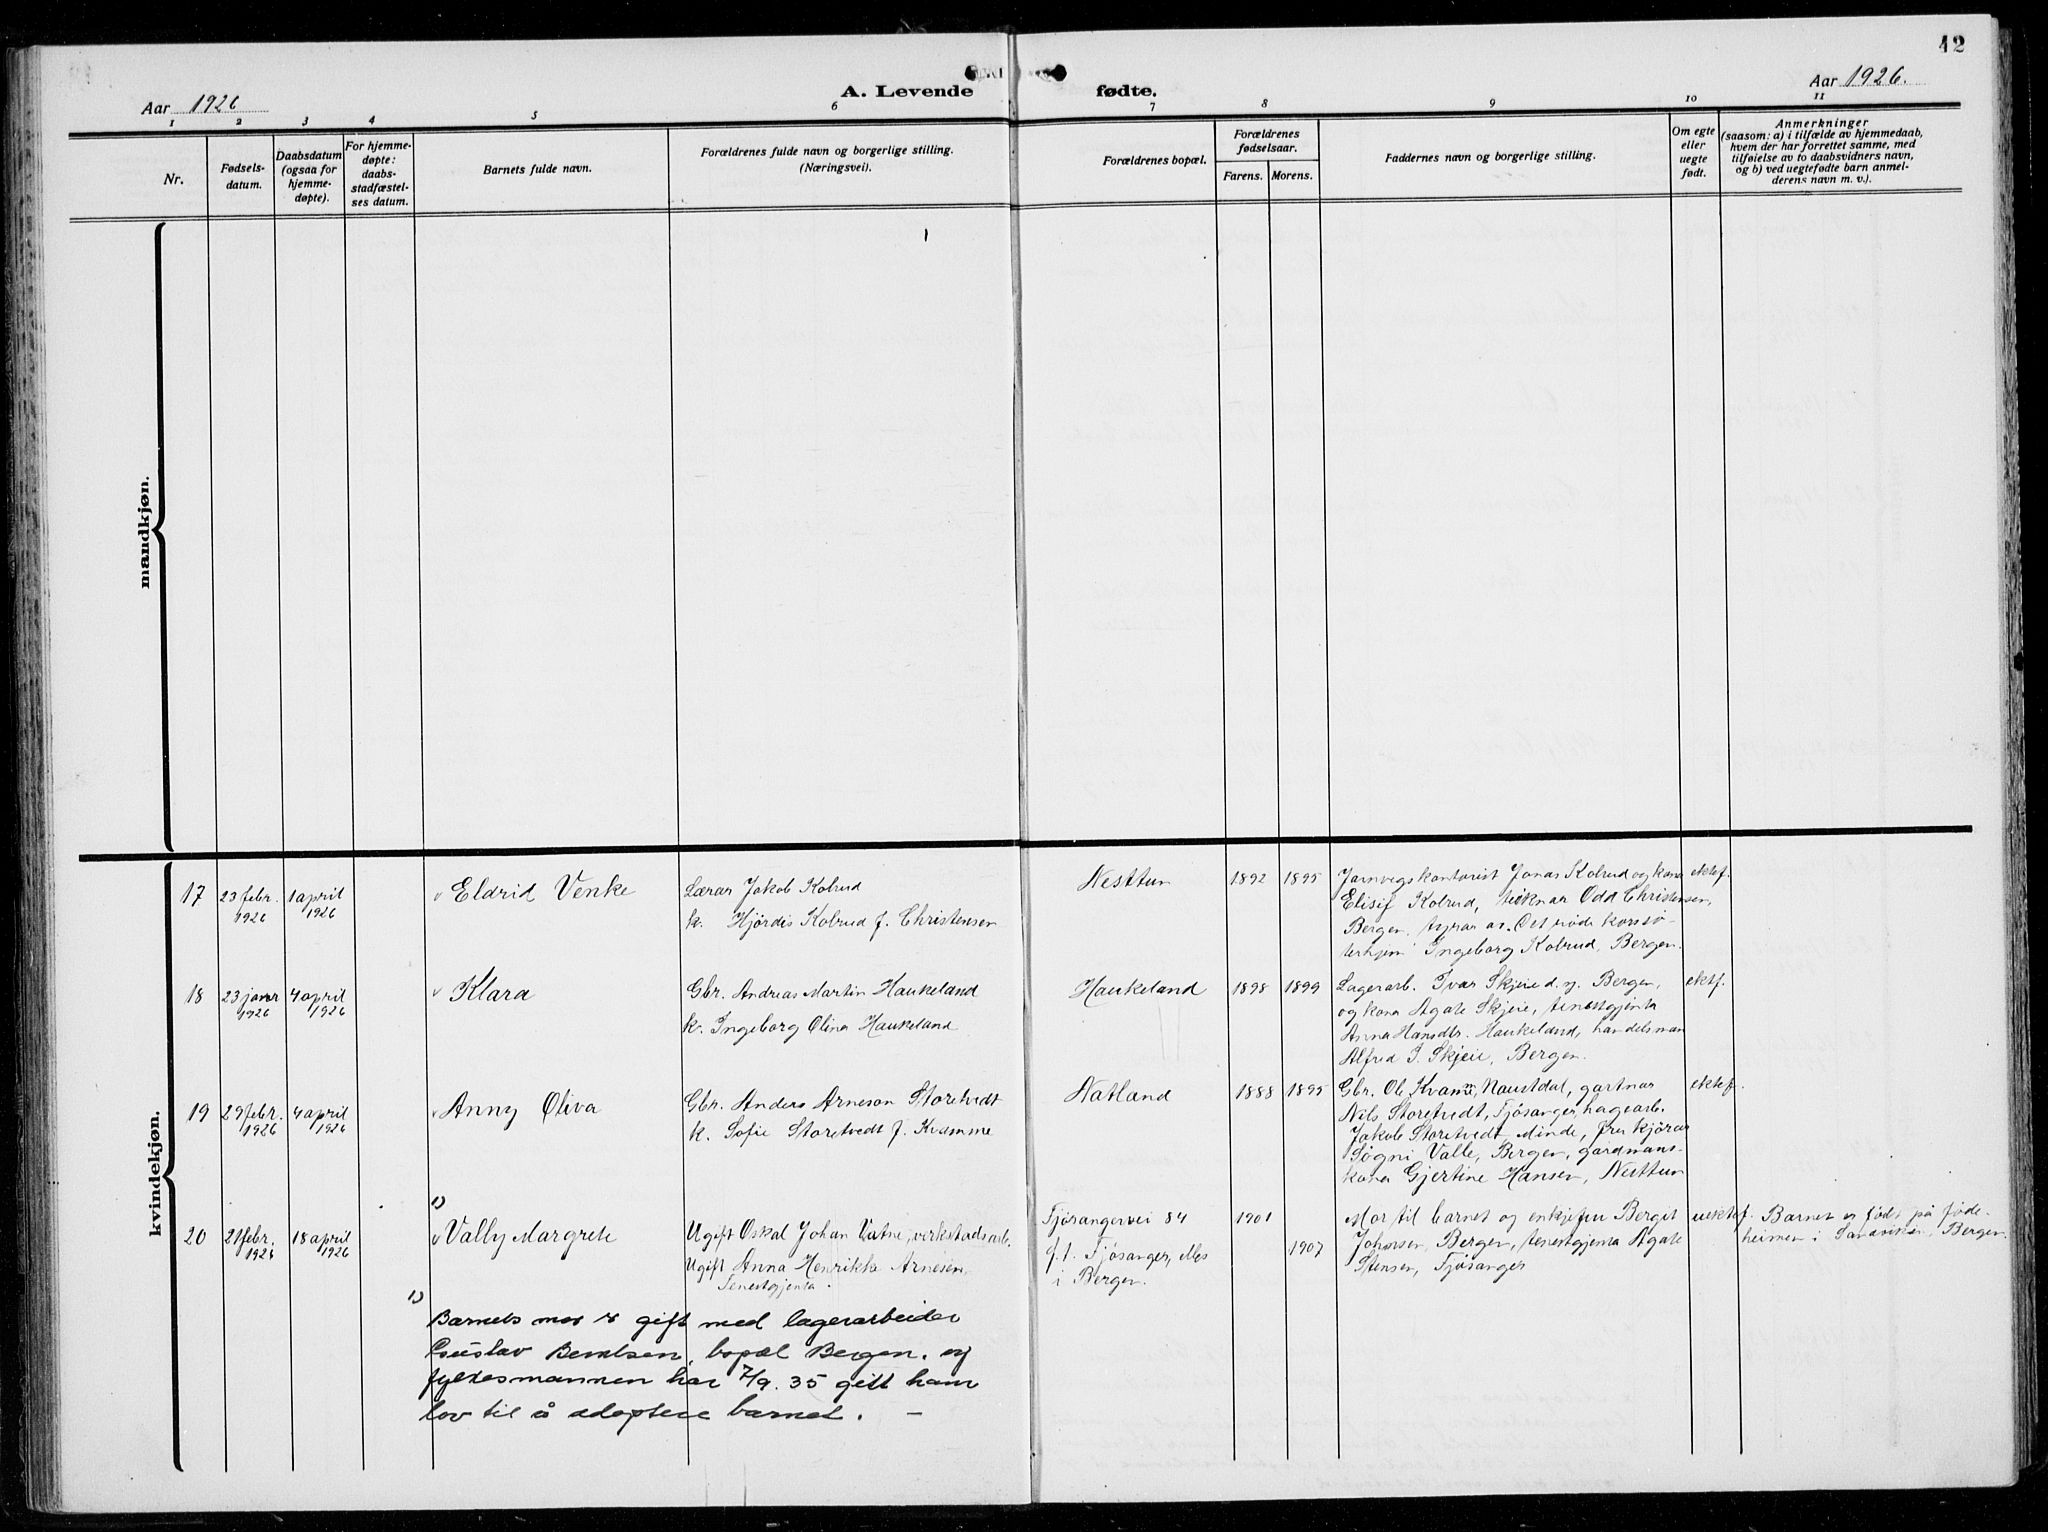 12
Aar 1926
A. Levende fødte.
Aar 1926.
1 2 3 4 5 6 7 8 9 10 11
Nr.
Fødsels-
datum.
Daabsdatum
(ogsaa for
hjemme-
døpte).
For hjemme-
døpte:
daabs-
stadfæstel-
ses datum.
Barnets fulde navn.
Forældrenes fulde navn og borgerlige stilling.
(Næringsvei).
Forældrenes bopæl.
Forældrenes
fødselsaar.
Farens. Morens.
Faddernes navn og borgerlige stilling.
Om egte
eller
uegte
født.
Anmerkninger
(saasom: a) i tilfælde av hjemmedaab,
hvem der har forrettet samme, med
tilføielse av to daabsvidners navn,
og b) ved uegtefødte barn anmel-
derens navn m. v.).
mandkjøn.
kvindekjøn.
17
23 febr.
1926
1 april
1926
Eldrid Venke
Lærar Jakob Kolrud
k. Hjördis Kolrud f. Christensen
Nesttun
1892 1895
Jarnvegskontorist Jonas Kolrud og kona
Elisif Kolrud, teiknar Odd Christensen,
Bergen, styrar av Det röde kors sö-
terhjem Ingeborg Kolrud, Bergen.
ektef.
18
23 januar
1926
4 april
1926
Klara
Gbr. Andreas Martin Haukeland
k. Ingeborg Olina Haukeland
Haukeland
1898 1899
Lagerarb. Ivar Skjeie d.y. Bergen,
og kona Agate Skjeie, tenestgjenta
Anna Hansdtr. Haukeland, handelsman
Alfred I. Skjeie, Bergen.
ektf.
19
29 febr.
1926
4 april
1926
Anny Oliva
Gbr. Anders Arneson Storetvedt
k. Sofie Storetvedt f. Kvamme
Natland
1888 1895
Gbr. Ole Kvamme, Naustdal, gartnar
Nils Storetvedt, Fjösanger, hagearb.
Jakob Storetvedt Minde, fru kjörar
Sögni Valle, Bergen, gardmans-
kona Gjertine Hansen, Nesttun
ektef.
20
21 febr.
1926
18 april
1926
1)
Vally Margrete
Ugift Oskal Johan Vatne, verkstadsarb.
Ugift Anna Henrikka Arnesen,
Tenestgjenta.
Fjösangervei 84
f.t. Fjösanger, elles
i Bergen.
1901
1907
Mor til barnet og enkjefru Bergit
Johnsen, Bergen, tenestgjenta Agate
Stensen, Fjösanger
uektef.
Barnet er födt på föde-
heimen i Sandviken, Bergen.
1)
Barnets mor er gift med lagerarbeider
Gustav Berntsen, bopæl Bergen, og
fylkesmannen har 7/9.35 gitt ham
lov til å adoptere barnet. —